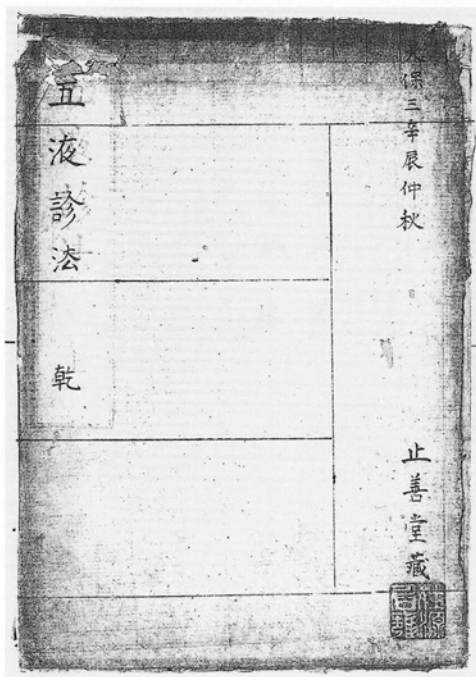 天保三年辰仲秋
止善堂藏
五液診法
乾